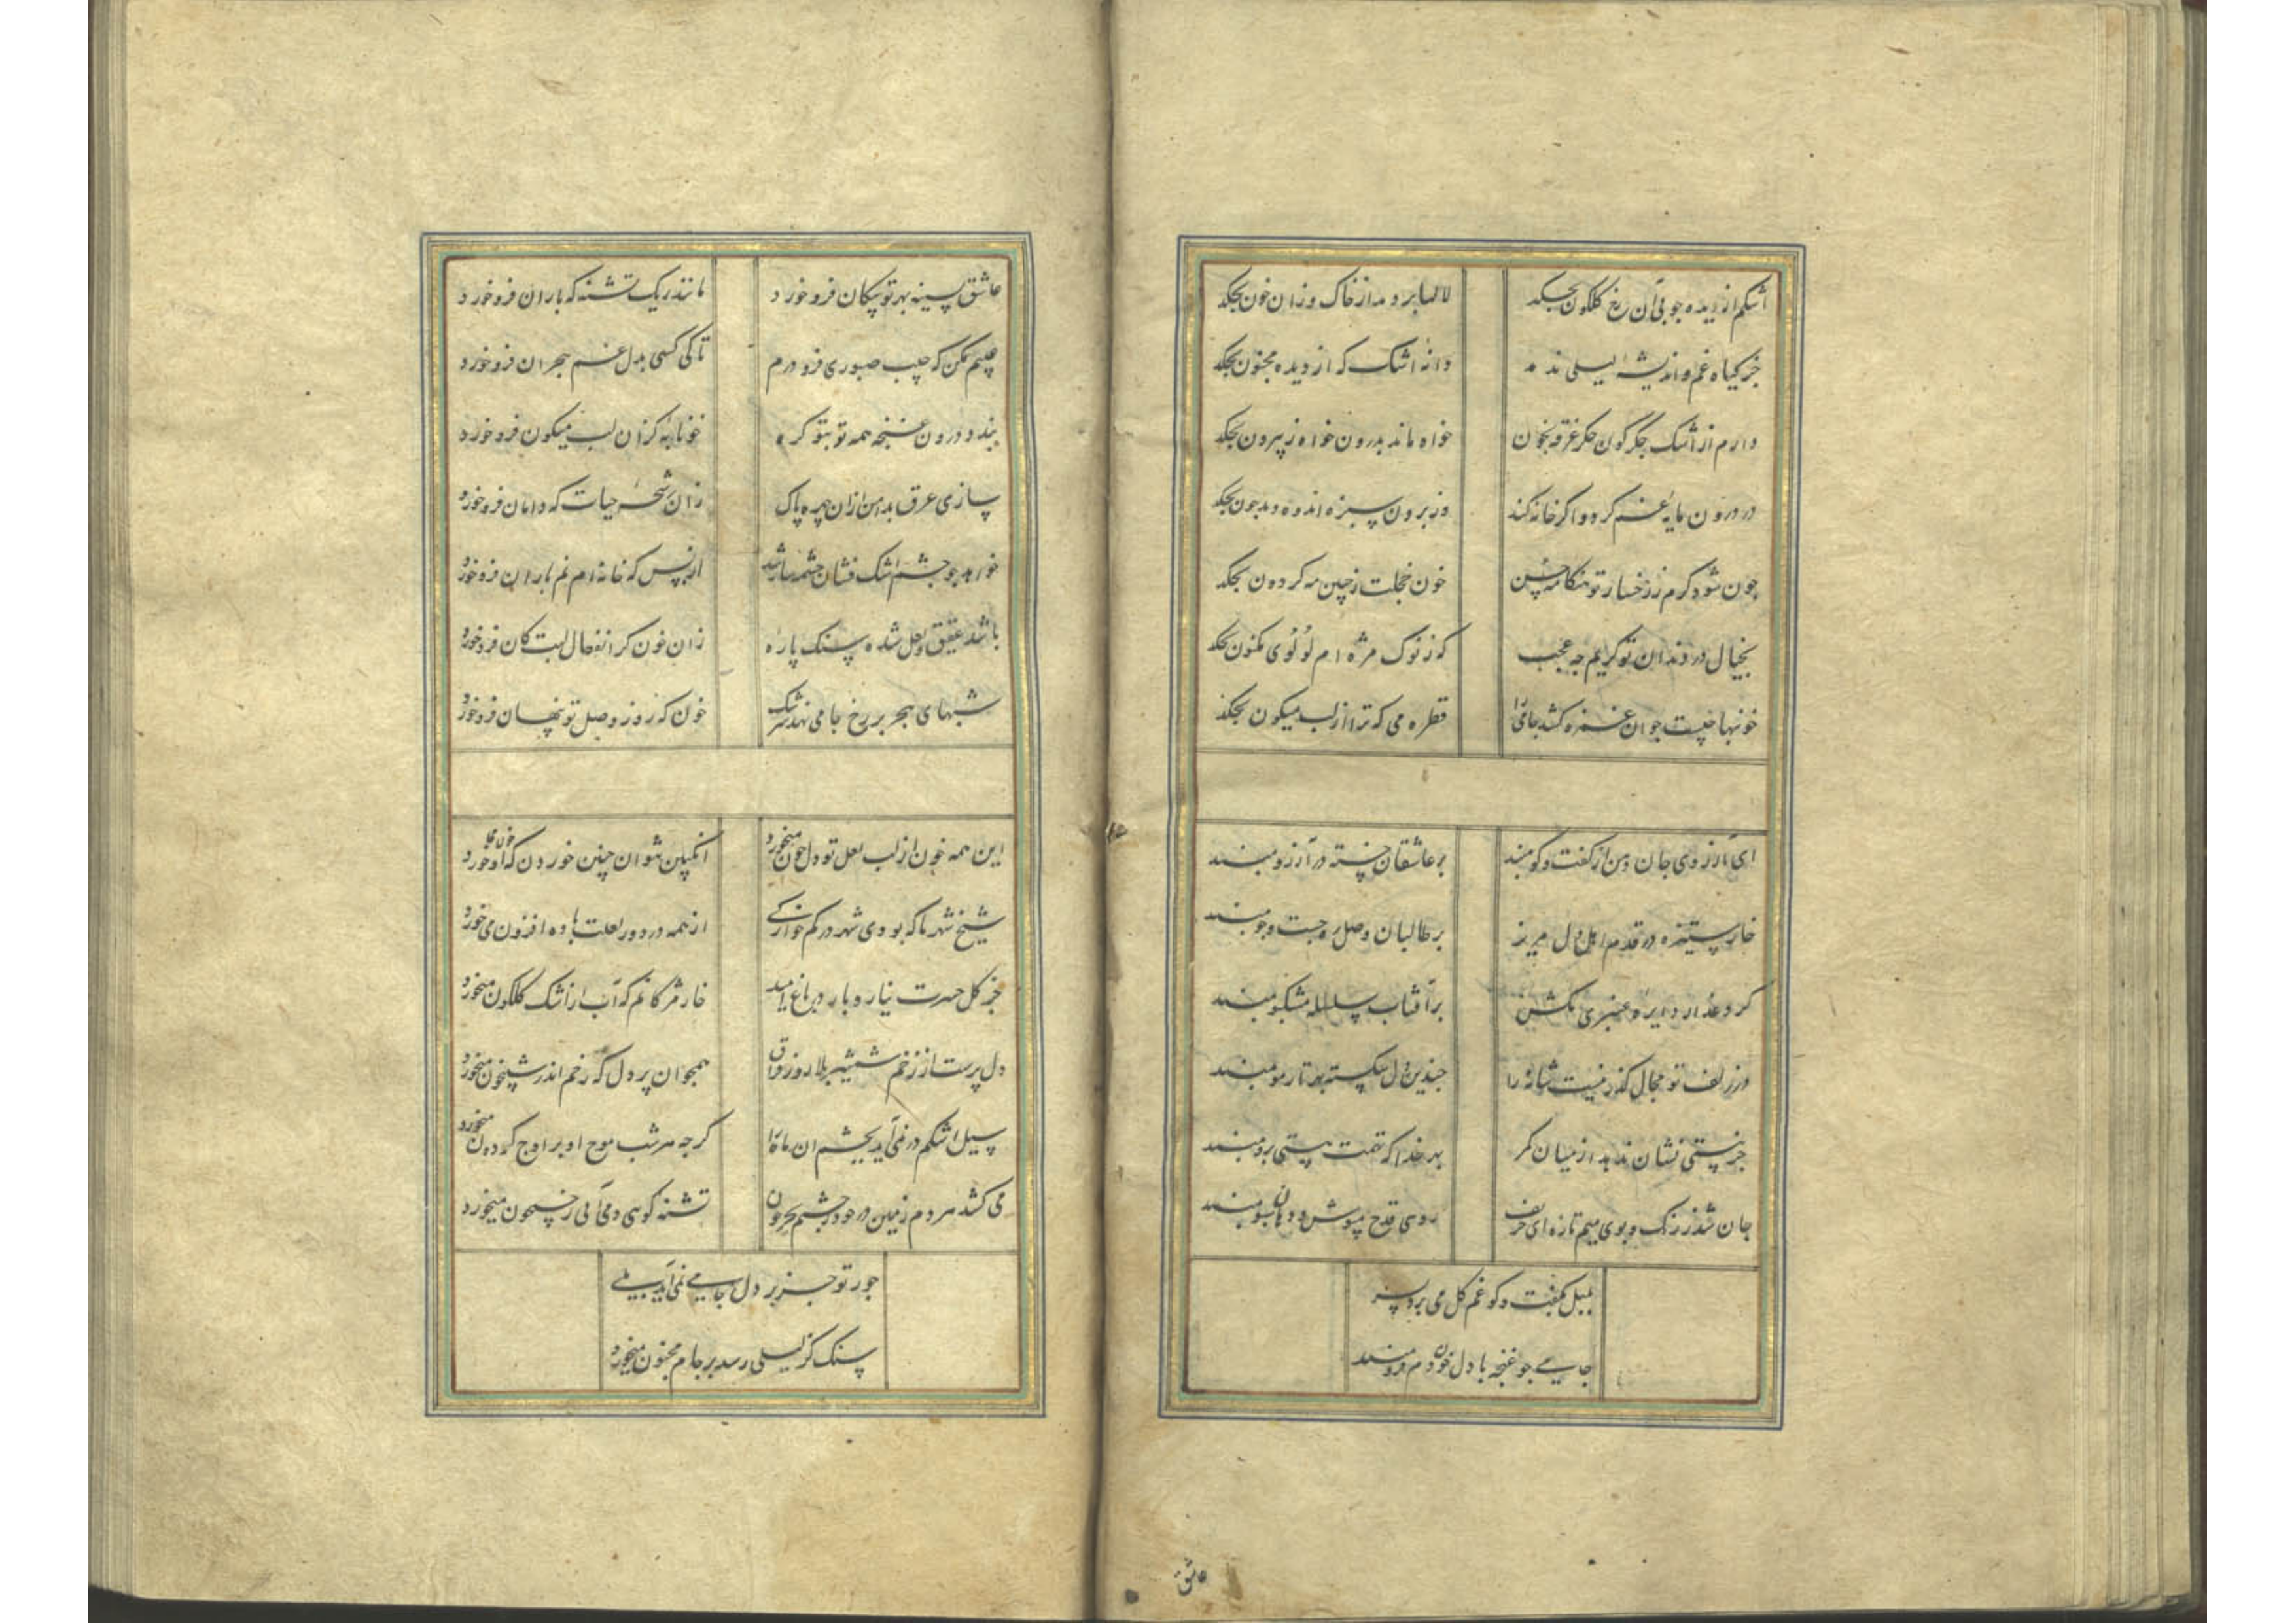 اشکم از دیده چو بی آن رخ گلگون بچکد
لالها بر دمد از خاک وزان خون بچکد
جز گیاه غم و اندیشه لیلی ندمد
دانه اشک که از دیده مجنون بچکد
دارم از اشک جگرگون جگر غرقه بخون
خواه ماند بدرون خواه ز بیرون بچکد
در درون مایه غم گردد اگر خانه کند
وز برون سبزه اندوه دمد چون بچکد
چون شود گرم ز رخسار تو هنگامه حسن
خون خجلت ز جبین مه گردون بچکد
بخیال در دندان تو گریم چه عجب
که ز نوک مژه ام لؤلؤی مکنون بچکد
خونبها چیست چو آن غمزه کشد جامی را
قطره می که ترا از لب میگون بچکد
ای آرزوی جان دهن از گفت و گو مبند
بر عاشقان خسته در آرزو مبند
خار ستیزه در قدم اهل دل مریز
بر طالبان وصل ره جست و جو مبند
گرد عذار دایره عنبری مکش
بر آفتاب سلسله مشکبو مبند
در زلف تو مجال گذر نیست شانه را
چندین دل شکسته بهر تار مو مبند
جز نیستی نشان ندهد از میان کمر
بهر خدا که تهمت هستی برو مبند
جان شد ز رنگ و بوی میم تازه ای حریف
روی قدح مپوش و دهان سبو مبند
بلبل بگفت و گو غم گل می برد بسر
جامی چو غنچه با دل خون دم فرو مبند
عاشق
عاشق بسینه بهر تو پیکان فرو خورد
مانند ریگ تشنه که باران فرو خورد
عیبم مکن که جیب صبوری فرو درم
تا کی کسی بدل غم هجران فرو خورد
بندد درون غنچه همه تو بتو گره
خونابه کزان لب میگون فرو خورد
سازی عرق بدامن ازان چهره پاک
زان رشحه حیات که دامان فرو خورد
خواهد چو چشم اشک فشان چشمه سار شد
از بس که خانه ام نم باران فرو خورد
باشد عقیق و لعل شده سنگ پاره
زان خون کز انفعال لبت کان فرو خورد
شبهای هجر بر رخ جامی نهد سرشک
خون که روز وصل تو پنهان فرو خورد
این همه خون از لب لعل تو دل چون میخورد
شیخ شهر ما که بودی شهره در کم خوارگی
از همه در دور لعلت باده افزون می خورد
جز گل حسرت نیارد بار در باغ امید
خار مژگانم که آب از اشک گلگون میخورد
دل پرست از زخم شمشیر بلا روز فراق
همچو آن پر دل که زخم اندر شبیخون میخورد
سیل اشکم در نمی آید بچشم آن ماه را
گرچه هر شب موج او بر اوج گردون میخورد
می کشد هر دم زمین در خود ز چشمم بحر خون
تشنه گویی دمی آبی ز جیحون میخورد
جور تو جز بر دل جامی نمی آید بلی
سنگ کز لیلی رسد بر جام مجنون میخورد